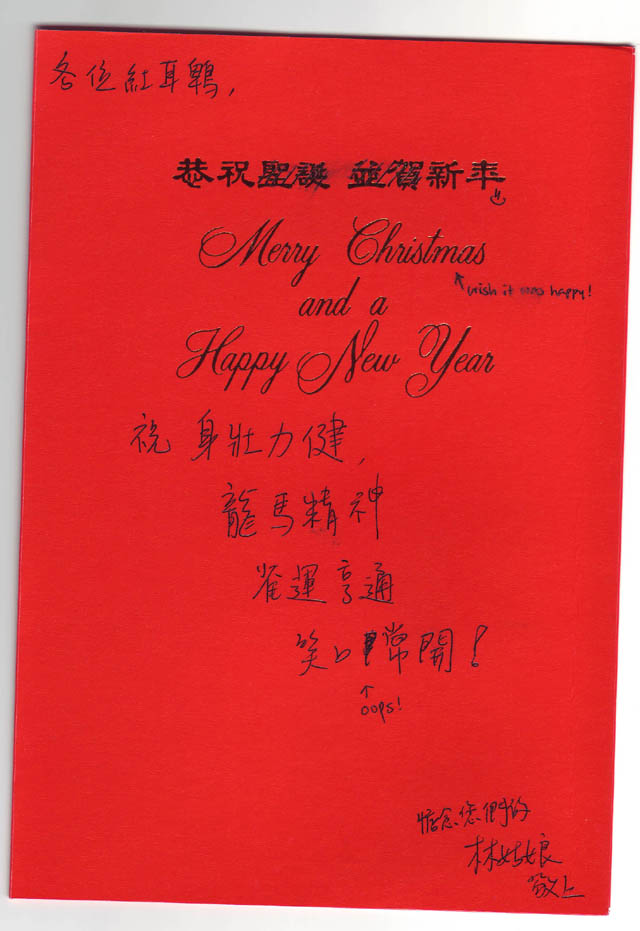 各位紅耳鵯,
恭祝聖誕 並賀新年
Merry Christmas
wish it was happy!
and a
Happy New Year
祝 身壯力健,
龍馬精神
雀運亨通
笑口常開!
oops!
惦念您們的
林姑娘
敬上